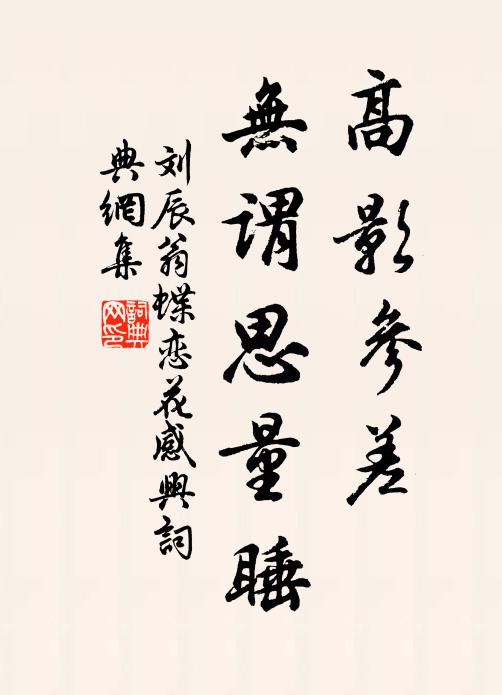 高影參差
無謂思量睡
刘辰翁蝶恋花感興詞
典網集
詞典网印